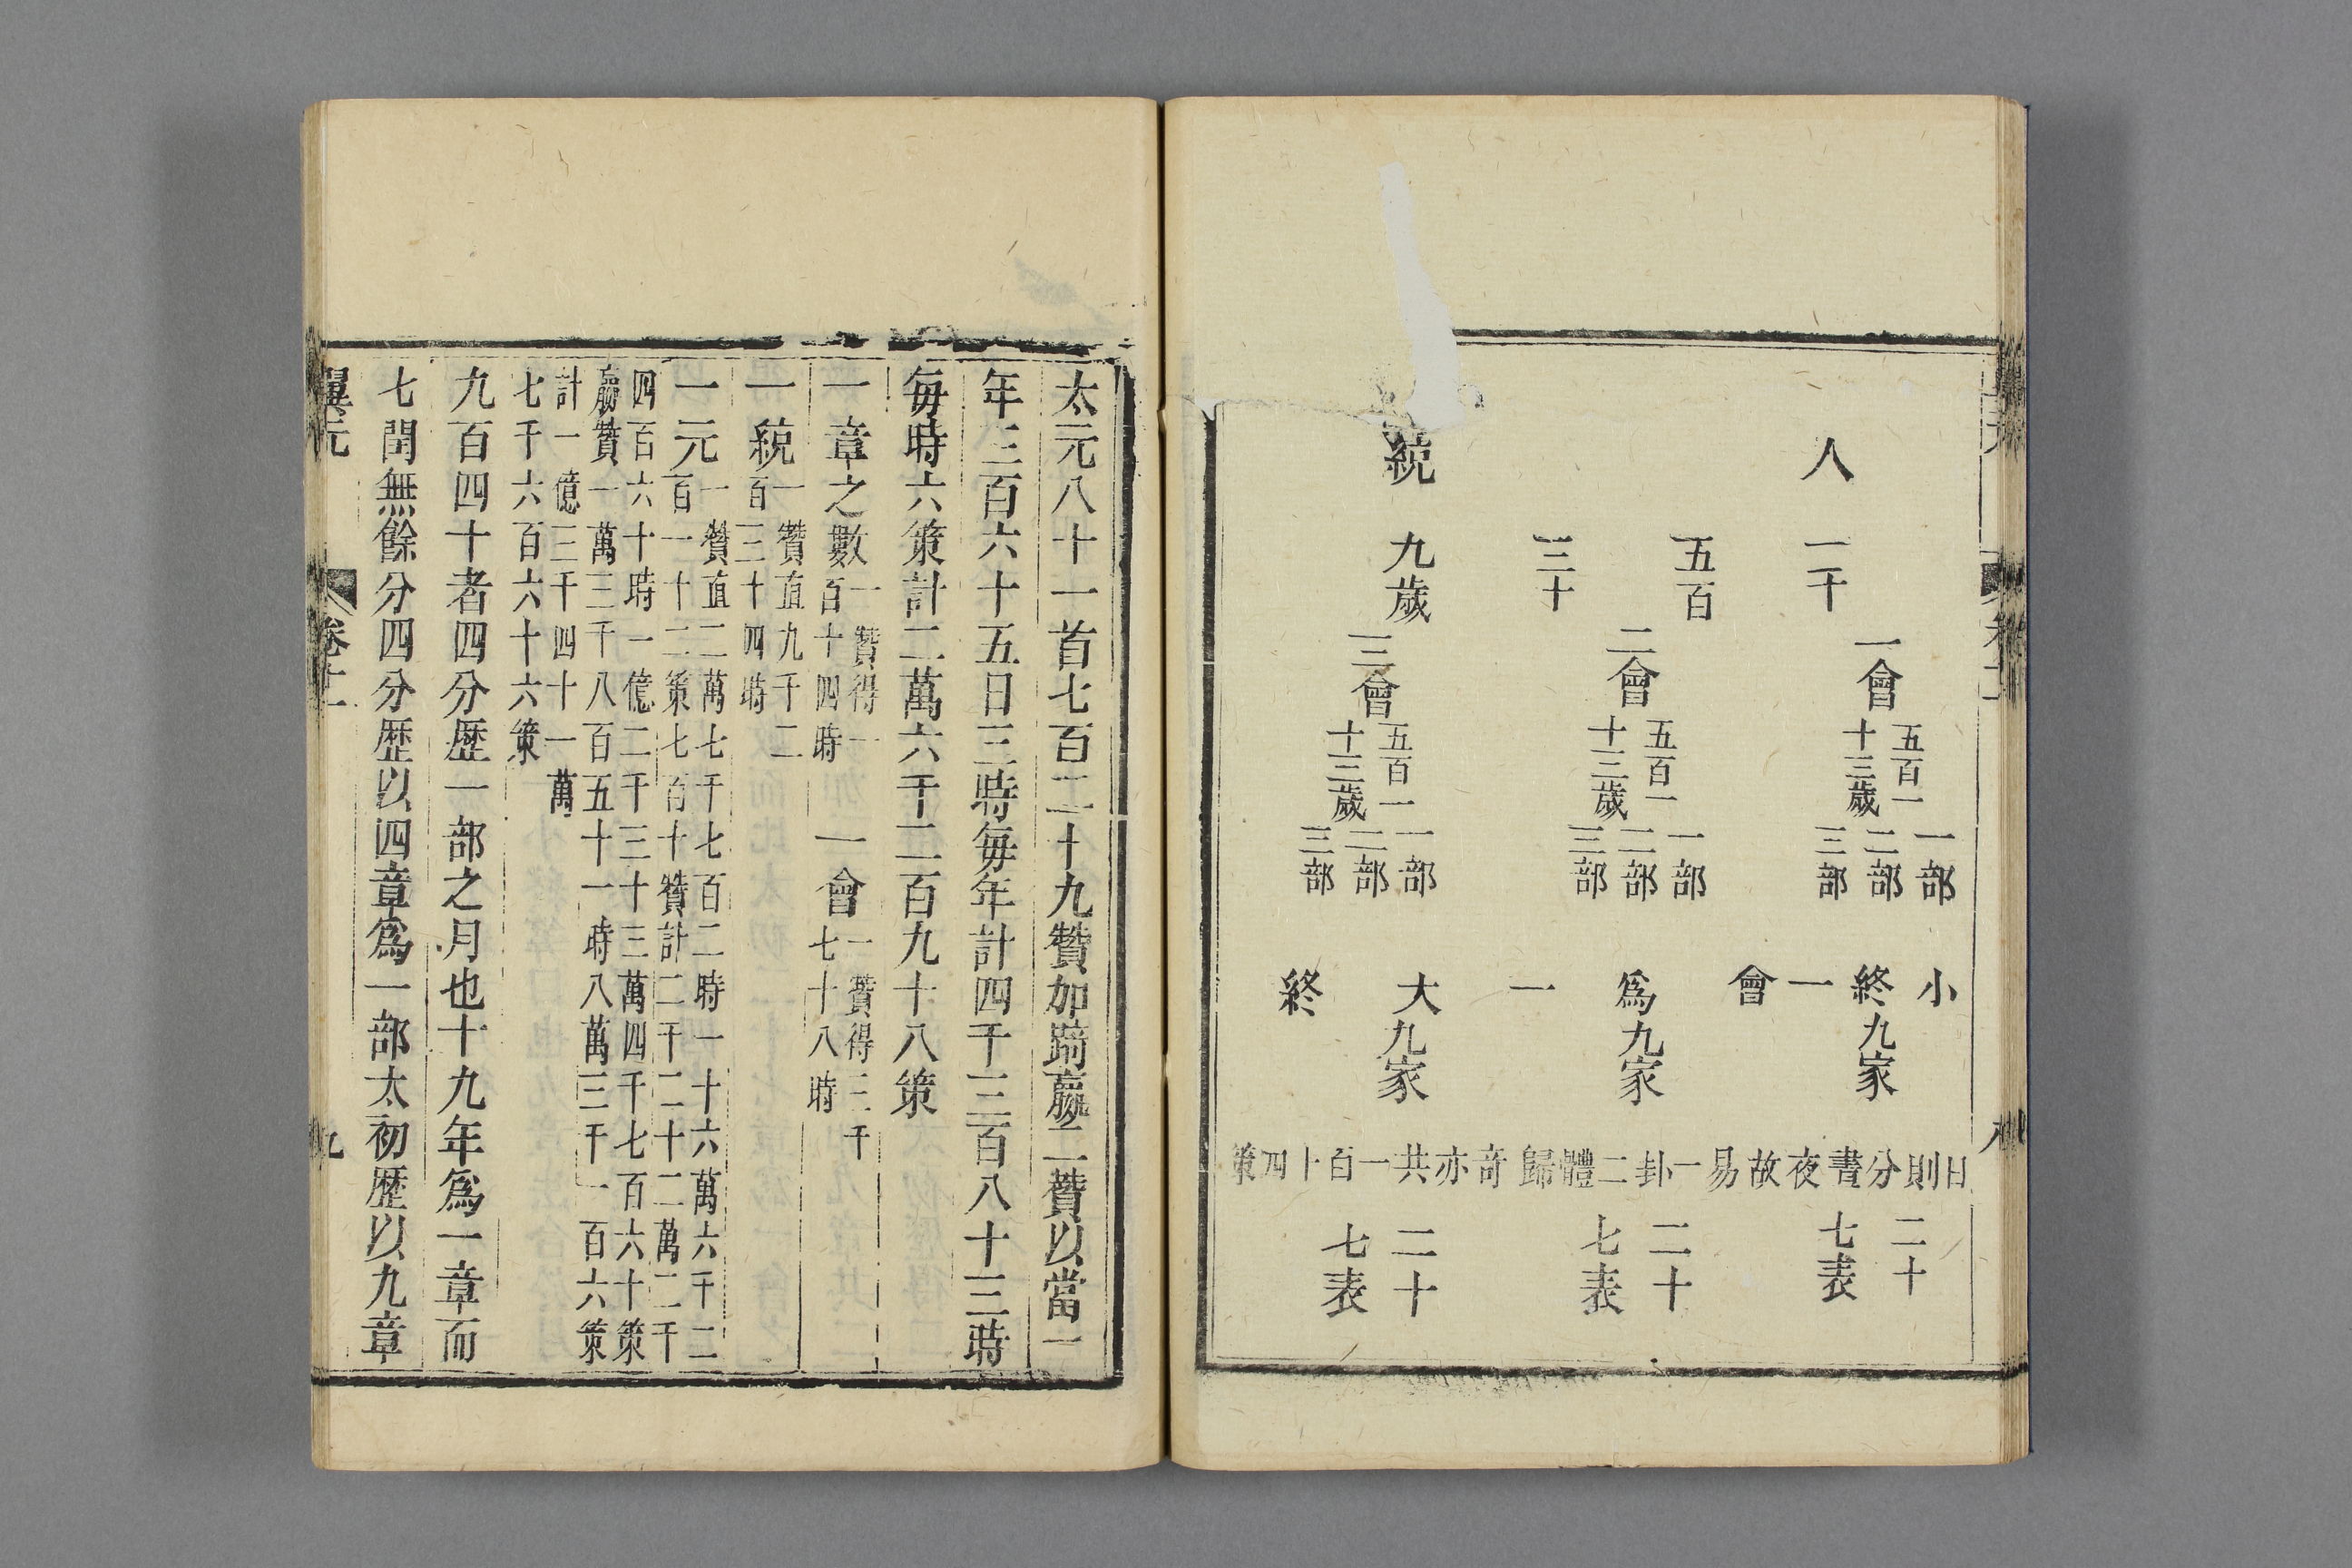 人 統
一千 五百 三十 九歲
一會 二會 三會
五百一
十三歲
五百一
十三歲
五百一
十三歲
一部 二部 三部
一部 二部 三部
一部 二部 三部
小終一會爲一大終
九家 九家 九家
日則分晝夜故易一卦二體歸奇亦共一百十四策
二十
七表
二十
七表
二十
七表
八
太元八十一首七百二十九贊加踦嬴二贊以當一
年三百六十五日三時每年計四千三百八十三時
每時六策計二萬六千二百九十八策
一章之數一贊得一
百十四時
一會一贊得三千
七十八時
一統一贊直九千二
百三十四時
一元一贊直二萬七千七百二時一十六萬六千二
百一十二策七百十贊計二千二十二萬二千
四百六十時一億二千三十三萬四千七百六十策
嬴贊一萬三千八百五十一時八萬三千一百六策
計一億三千四十一萬
七千六百六十六策
九百四十者四分歷一部之月也十九年爲一章而
七閏無餘分四分歷以四章爲一部太初歷以九章
翼元
卷十一
九